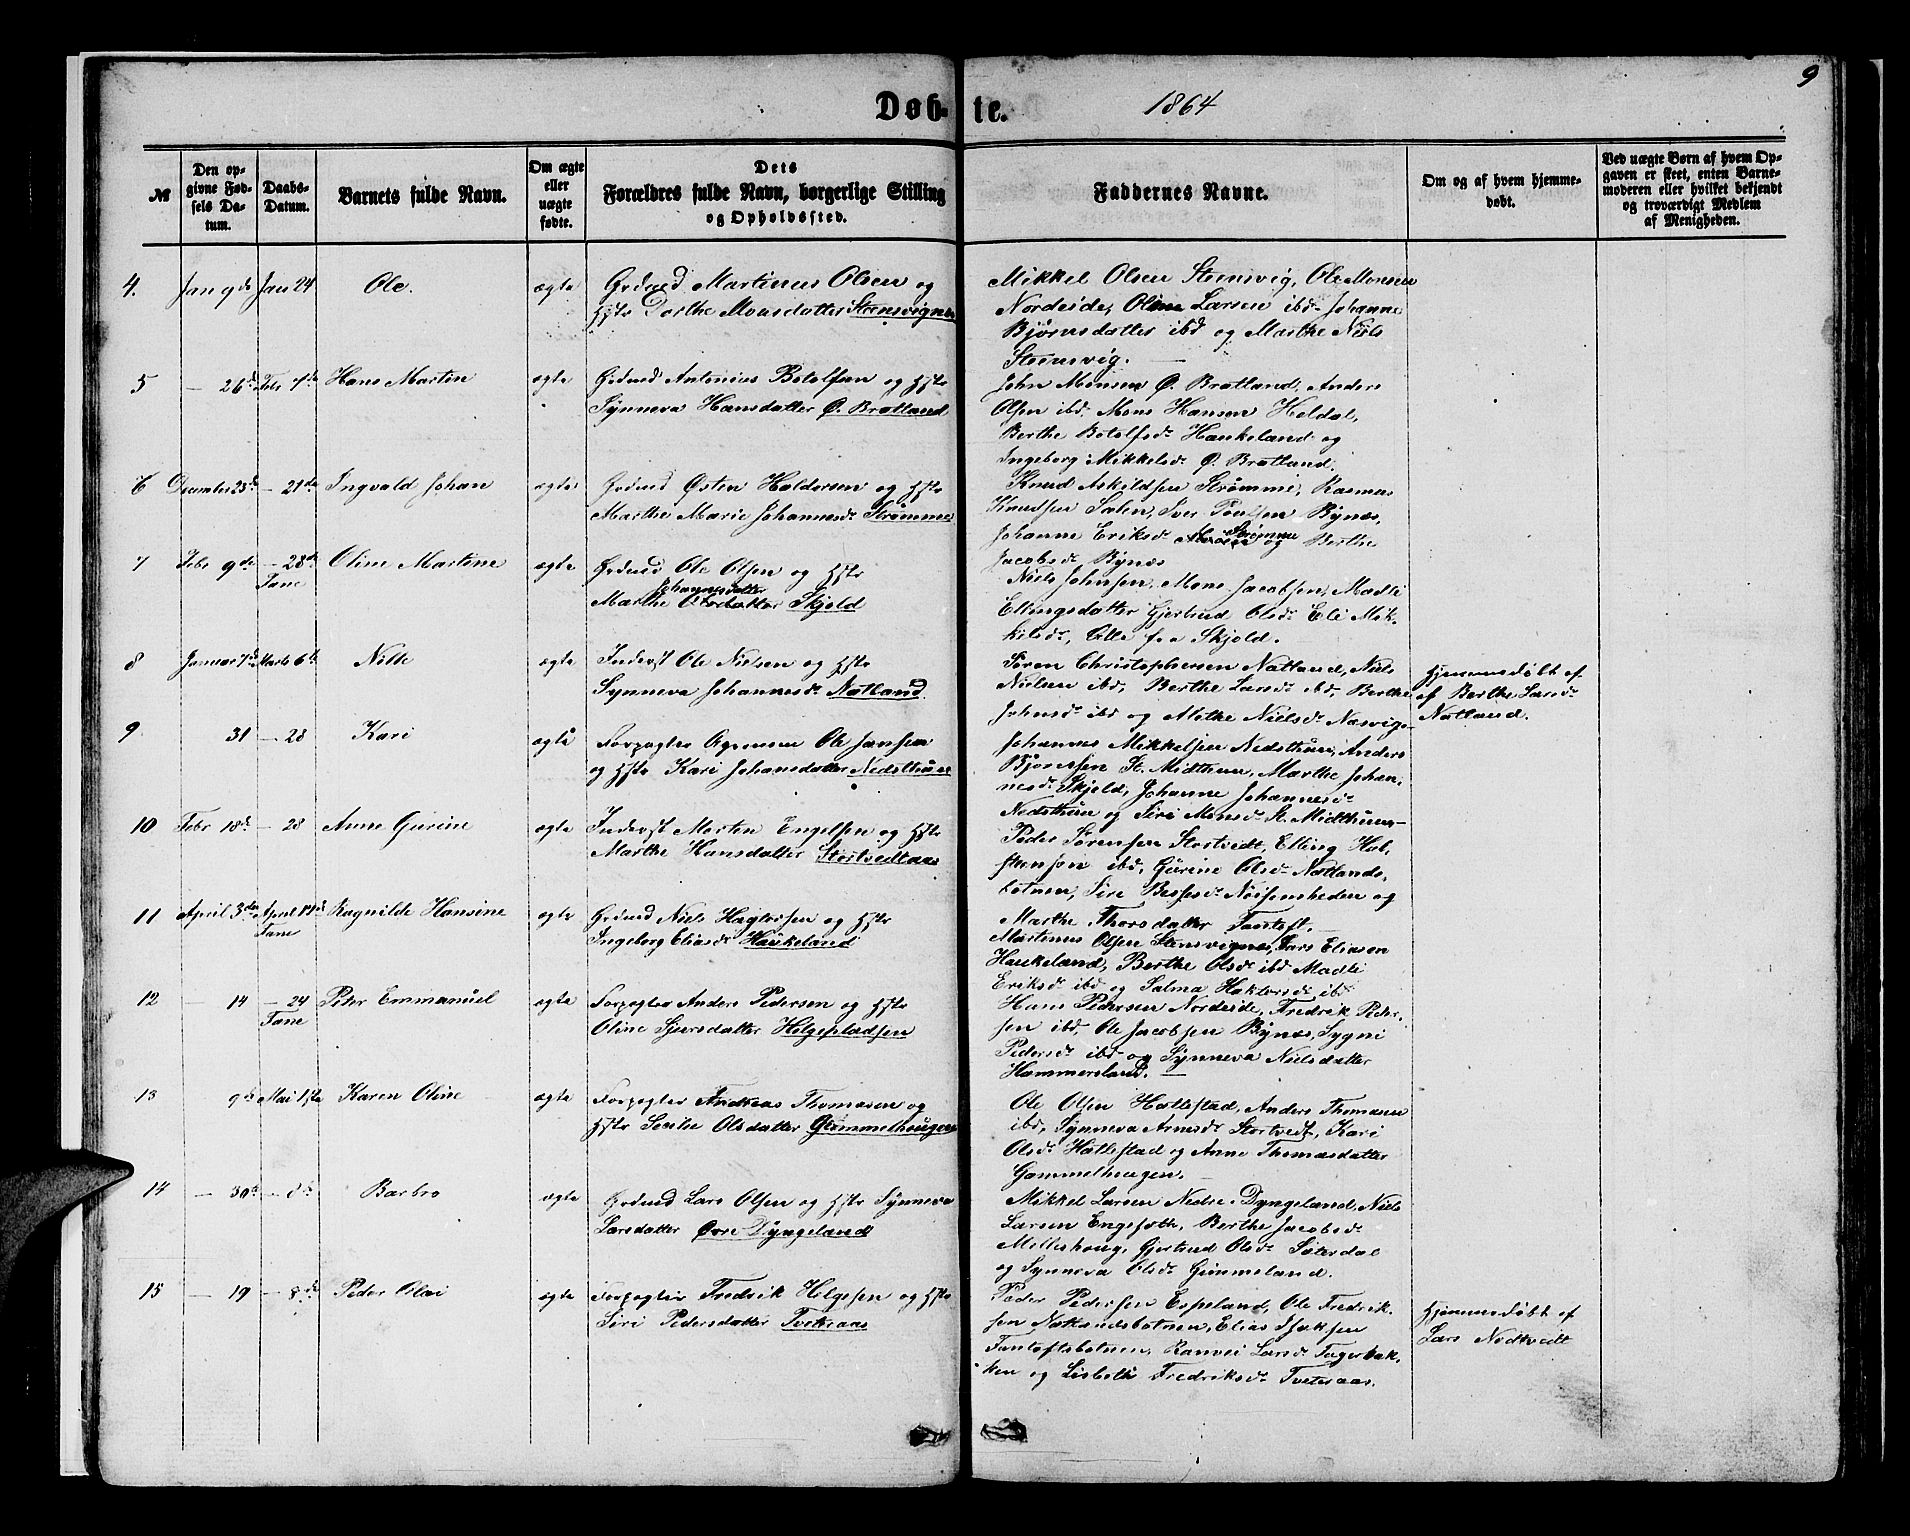 9
Døb- te. 1864
№
Den op-
givne Fød-
sels Da-
tum.
Daabs-
Datum.
Barnets fulde Navn.
Om ægte
eller
uægte
fødte.
Dets
Forældres fulde Navn, borgerlige Stilling
og Opholdssted.
Faddernes Navne.
Om og af hvem hjemme-
døbt.
Ved uægte Børn af hvem Op-
gaven er skeet, enten Barne-
moderen eller hvilket bekjendt
og troværdigt Medlem
af Menigheden.
4. Jan 9de Jan 24 Ole. ægte
Grdmd Martinus Olsen og
Hstr Dorthe Monsdatter Steensvignes
Mikkel Olsen Steensvig, Ole Monsen
Nordeide, Oline Larsen ibd. Johanne
Bjørnsdatter ibd og Marthe Niels
Steensvig.
5 — 26d Febr 7de Hans Martin ægte
Grdmd Antonius Botolfsen og Hstr
Synneva Hansdatter Ø. Bratland
John Monsen Ø. Bratland, Anders
Olsen ibd. Mons Hansen Heldal,
Berthe Botolfsdr Haukeland og
Ingeborg Mikkelsdr Ø. Bratland.
6 December 23de — 21de Ingvald Johan ægte
Grdmd Østen Haldorsen og Hstr
Marthe Marie Johannesdr Strømme
Knud Askildsen Strømme, Rasmus
Knudsen Salen, Iver Poulsen Bynæs,
Johanne Eriksdr Strømme og Berthe
Jacobsdr Bynæs
7 Febr 9de — 28de Oline Martine ægte
Fane
Grdmd Ole Olsen og Hstr
Johannesdatter
Marthe Olsdatter Skjold
Niels Johnsen, Mons Jacobsen, Madli
Ellingsdatter Gjertrud Olsdr Eli Mik-
kelsdr, Alle fra Skjold.
8 Januar 7de Marts 6te Nille ægte
Inderst Ole Nielsen og Hstr
Synneva Johannesdr Natland
Søren Christophersen Natland, Niels
Nielsen ibd, Berthe Larsdr ibd, Berthe
Johnsdr ibd og Nielsdr
Hjemmedøbt af
af Berthe Larsdr
Natland.
9. 31 — 28 Kari ægte
Forpagter Ole Jansen
og Hstr Kari Johansdatter Nedsthuus
Johannes Mikkelsen Nedsthuus, Anders
Bjørnsen St. Midthuus, Marthe Johan-
nesdr Skjold, Johanne Johannesdr
Nedsthuus og Siri Monsdr St. Midthuus
10 Febr 18de — 28 Anne Gurine ægte
Inderst Morten Engelsen og Hstr
Marthe Hansdatter Stortvedtaas
Peder Sørensen Stortvedt, Elling
ibd, Gurine Olsdr Natlands-
botnen, Siri og
Marthe Thorsdatter Fantoft.
11 April 3die April 17de Ragnilde Hansine ægte
Fane
Grdmd Niels og Hstr
Ingeborg Eliasdr Haukeland
Martinus Olsen Stensvignes, Lars Eliasen
Haukeland, Berthe Olsdr ibd Madli
Eriksdr ibd og Salma ibd
12 — 14 — 24 Peter Emmanuel ægte
Fane
Forpagter Anders Pedersen og Hstr
Oline Sjursdatter Helgepladsen
Hans Pedersen Nordeide, Fredrik Peder-
sen ibd, Ole Jacobsen Bynæs, Sygni
Pedersdr ibd og Synneva Nielsdatter
Hammersland.
13 9de Mai 1ste Karen Oline ægte
Forpagter Andreas Thomasen og
Hstr Sesilie Olsdatter Gammelhaugen
Ole Olsen Hatlestad, Anders Thomasen
ibd, Synneva Arnesdr Stortvedt, Kari
Olsdr Hatlestad og Anne Thomasdatter
Gammelhaugen.
14 — 30te — 8de Barbro ægte
Grdmd Lars Olsen og Hstr Synneva
Larsdatter Øvre Dyngeland
Mikkel Larsen Nedre Dyngeland, Niels
Larsen Berthe Jacobsdr
Gjertrud Olsdr Sæterdal
og Synneva Olsdr Gimmeland.
15 — 19 — 8de Peder Olai ægte
Forpagter Fredrik Helgesen og Hstr
Siri Pedersdatter Tveteraas
Peder Pedersen Espeland, Ole Fredrik-
sen Natlandsbotnen, Elias Isaksen
Fantoftsbotnen, Ranvei Larsdr Fagerbak-
ken og Lisbeth Fredriksdr Tveteraas.
Hjemmedøbt af
Lars Nødtvedt